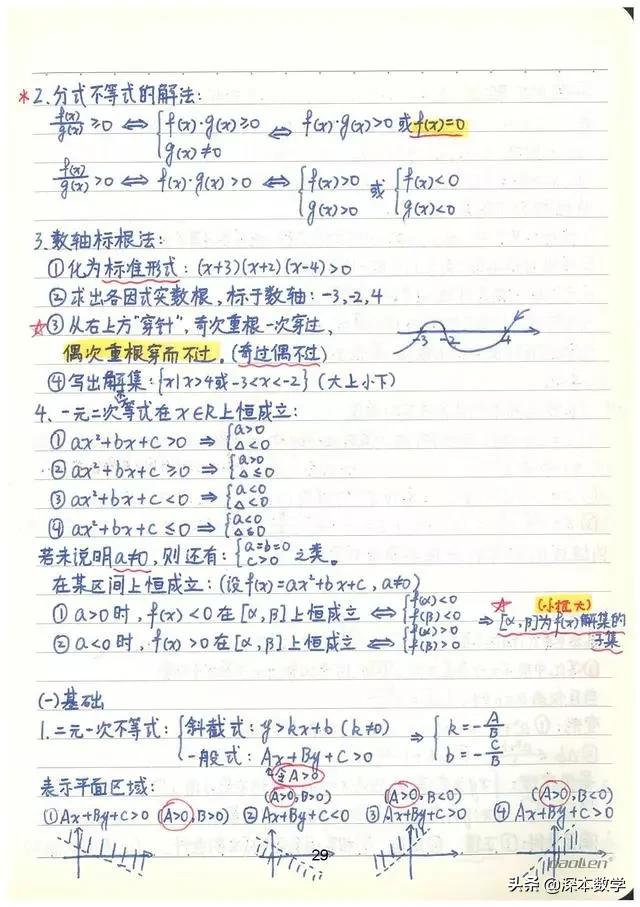 *2.分式不等式的解法:
f(x)/g(x)≥0 ⇔ {f(x)·g(x)≥0 ⇔ f(x)·g(x)>0 或 f(x)=0
g(x)≠0
f(x)/g(x)>0 ⇔ f(x)·g(x)>0 ⇔ {f(x)>0 或 {f(x)<0
g(x)>0 g(x)<0
3.数轴标根法:
①化为标准形式:(x+3)(x+2)(x-4)>0
②求出各因式实数根,标于数轴:-3,-2,4
☆③从右上方"穿针",奇次重根一次穿过,
偶次重根穿而不过。(奇过偶不过)
-3 -2 4
④写出解集:{x|x>4或-3<x<-2}(大上小下)
4.一元二次等式在x∈R上恒成立:
①ax²+bx+c>0 ⇒ {a>0
△<0
②ax²+bx+c≥0 ⇒ {a>0
△≤0
③ax²+bx+c<0 ⇒ {a<0
△<0
④ax²+bx+c≤0 ⇒ {a<0
△≤0
若未说明a≠0,则还有:{a=b=0 之类。
c>0
在某区间上恒成立:(设f(x)=ax²+bx+c,a≠0)
①a>0时,f(x)<0在[α,β]上恒成立 ⇔ {f(α)<0
f(β)<0
②a<0时,f(x)>0在[α,β]上恒成立 ⇔ {f(α)>0
f(β)>0
☆
⇒[α,β]为f(x)解集的
子集
(一)基础
1.二元一次不等式:{斜截式:y>kx+b(k≠0) ⇒ {k=-A/B
一般式:Ax+By+C>0 b=-C/B
令A>0
表示平面区域:
①Ax+By+C>0 (A>0,B>0)
(A>0,B>0)
②Ax+By+C<0
(A>0,B<0)
③Ax+By+C>0
(A>0,B<0)
④Ax+By+C>0
29
头条@深本数学